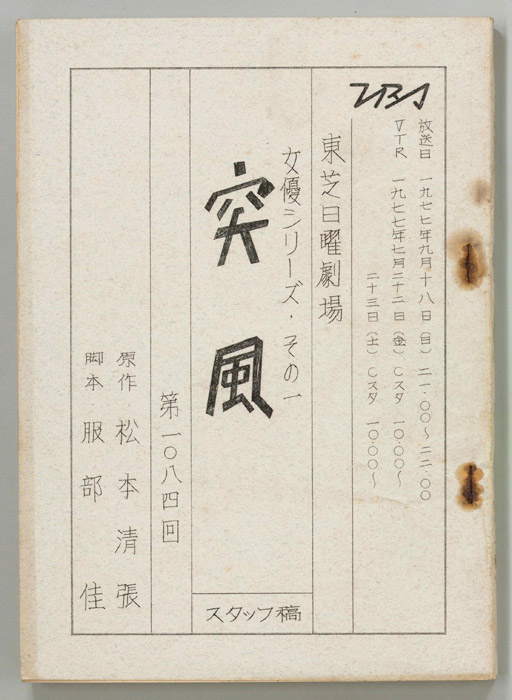 TBS
放送日 一九七七年九月十八日(日)二一.〇〇〜二二.〇〇
VTR 一九七七年七月二十二日(金)Cスタ 一〇.〇〇〜
二十三日(土)Cスタ 一〇.〇〇〜
東芝日曜劇場
女優シリーズ・その一
突風
スタッフ稿
第一〇八四回
原作 松本清張
脚本 服部佳